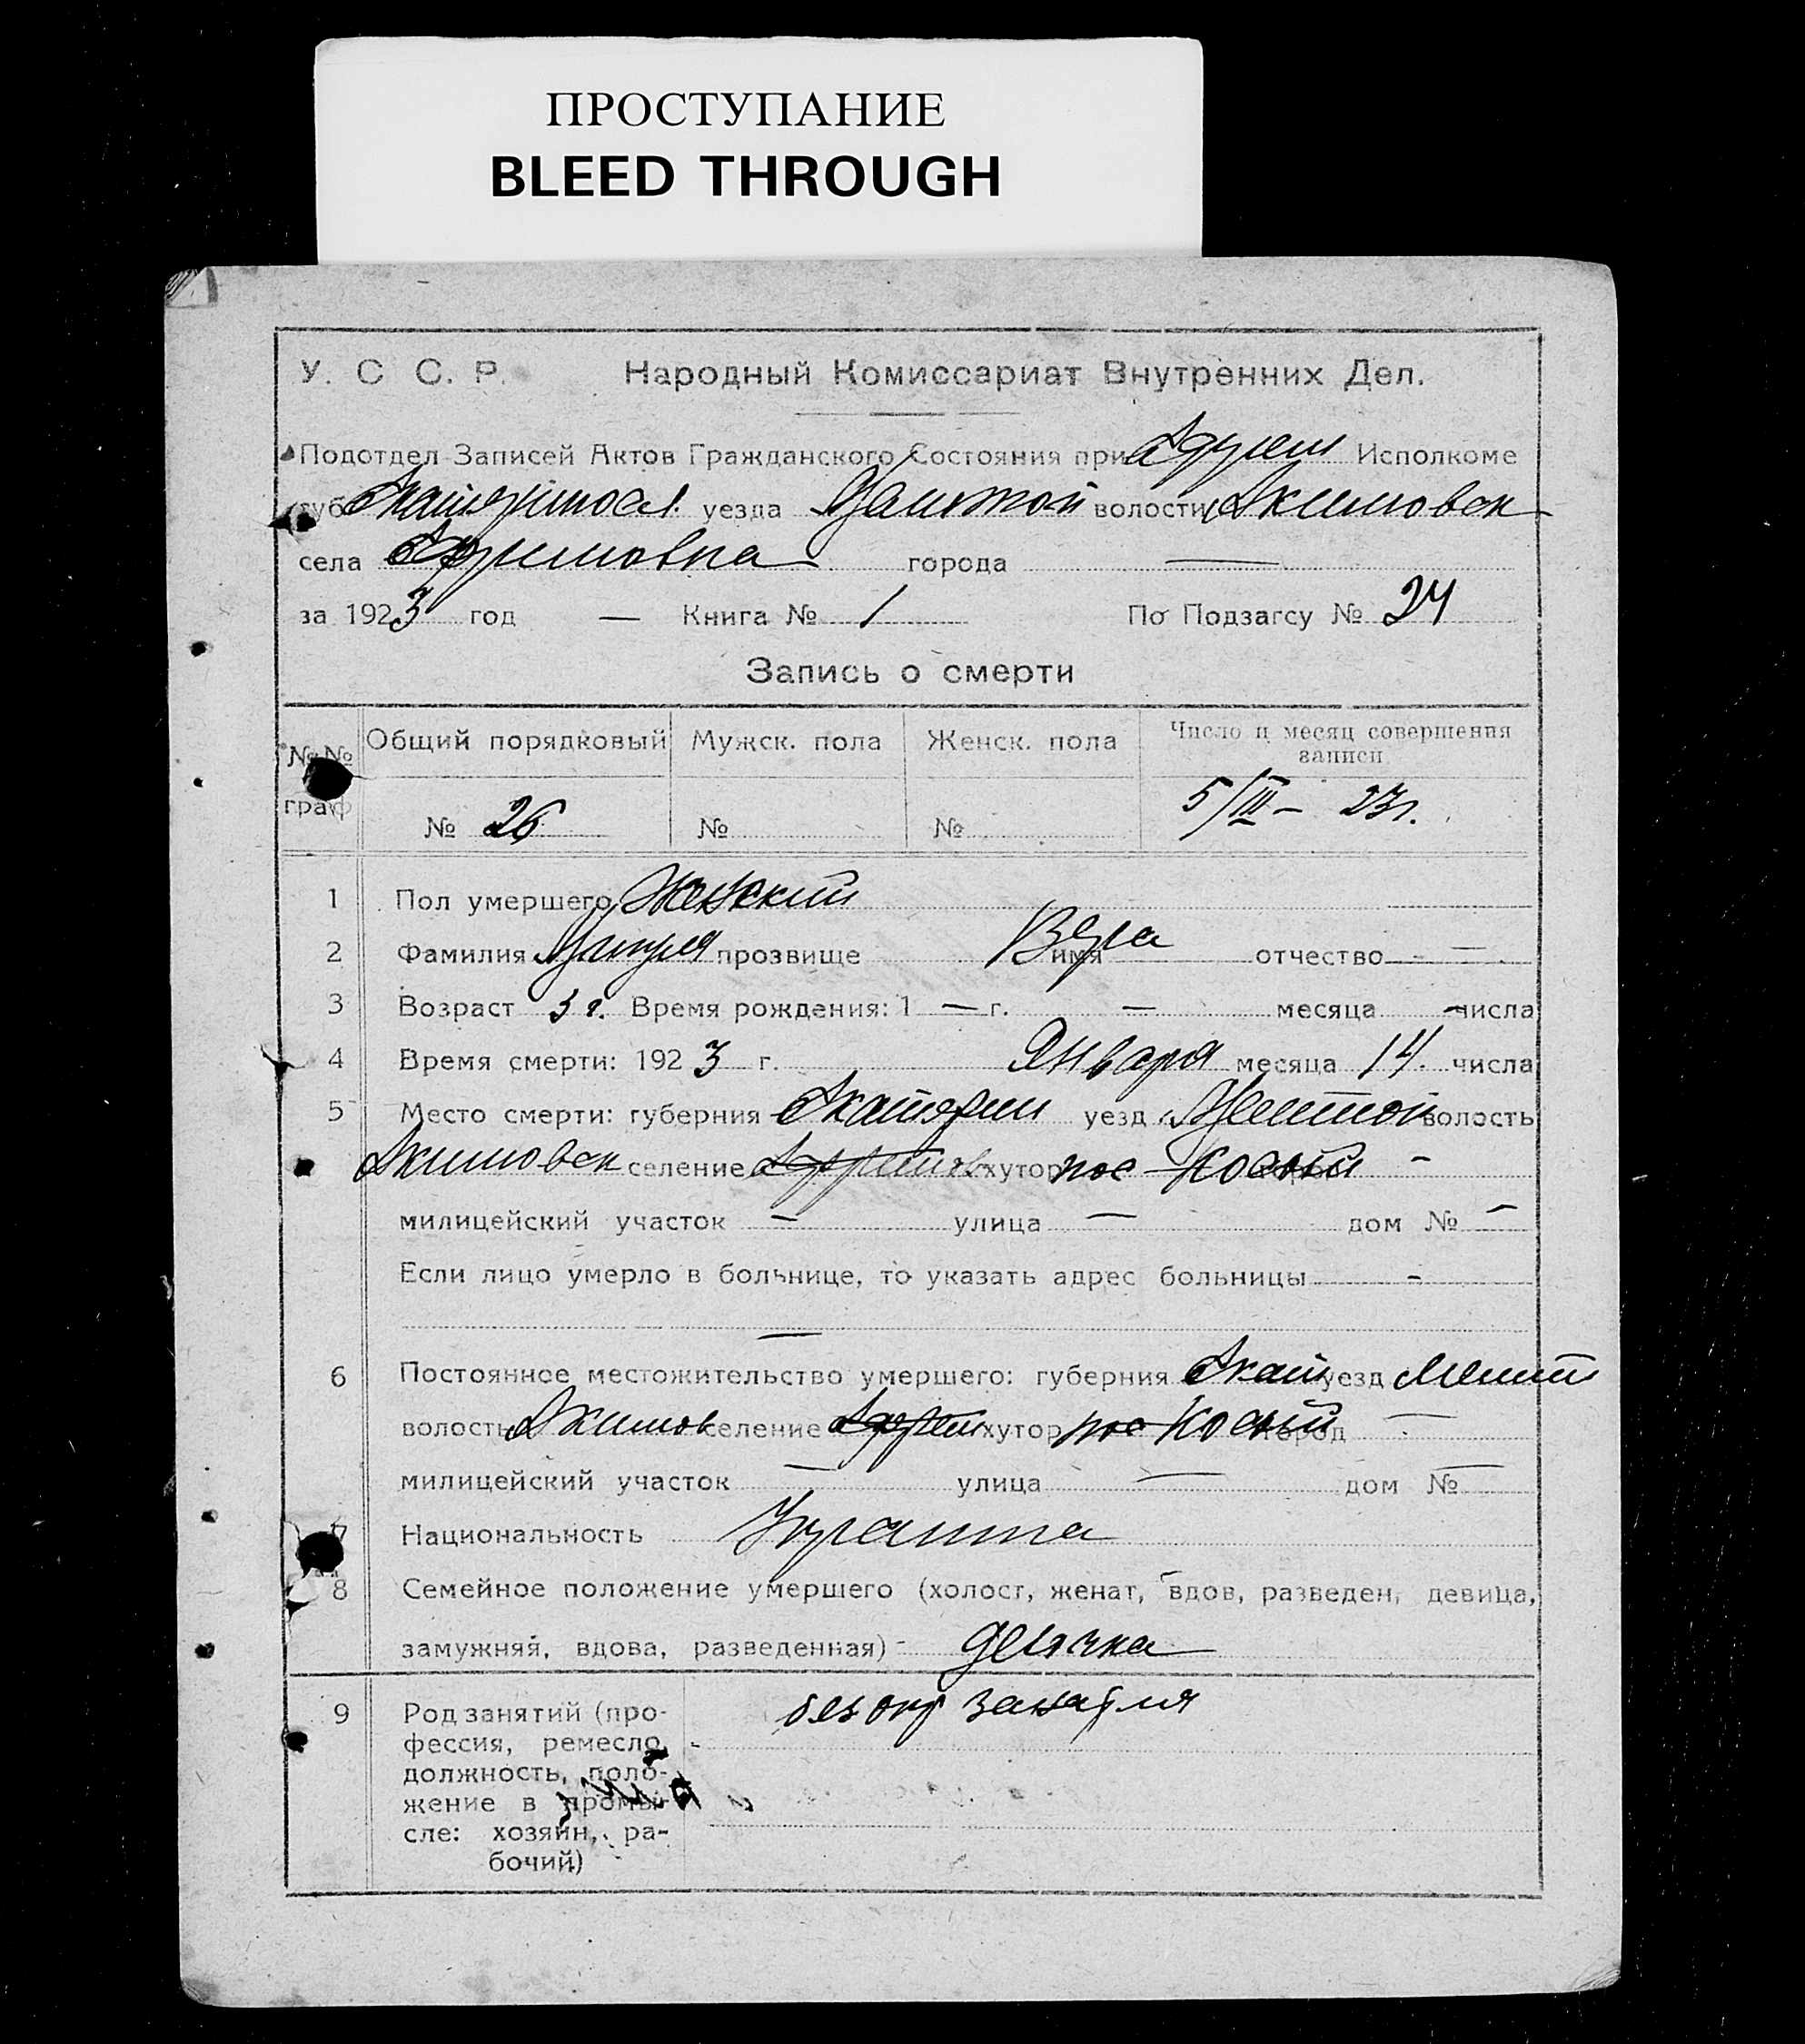 ПРОСТУПАНИЕ
BLEED THROUGH
У. С. С. Р. Народный Комиссариат Внутренних Дел.
Подотдел Записей Актов Гражданского Состояния при Исполкоме
губ уезда волости Акимовск
села города —
за 1923 год — Книга № 1 По Подзагсу № 24
Запись о смерти
№№ граф Общий порядковый Мужск. пола Женск. пола Число и месяц совершения записи
№ 26 № № 5/III – 23 г.
1 Пол умершего Женский
2 Фамилия прозвище имя Вера отчество —
3 Возраст 3 г. Время рождения: 1 — г. — месяца — числа
4 Время смерти: 1923 г. Января месяца 14 числа
5 Место смерти: губерния Екатерин уезд волость
Акимовск селение хутор пос Косый —
милицейский участок — улица — дом № —
Если лицо умерло в больнице, то указать адрес больницы -
—
6 Постоянное местожительство умершего: губерния Екат уезд Мелит
волость Акимов селение хутор пос Косый город —
милицейский участок — улица — дом № —
7 Национальность
8 Семейное положение умершего (холост, женат, вдов, разведен, девица,
замужняя, вдова, разведенная) - девочка
9 Род занятий (про- без опр занятия
фессия, ремесло,
должность, поло-
жение в промы-
сле: хозяин, ра-
бочий)